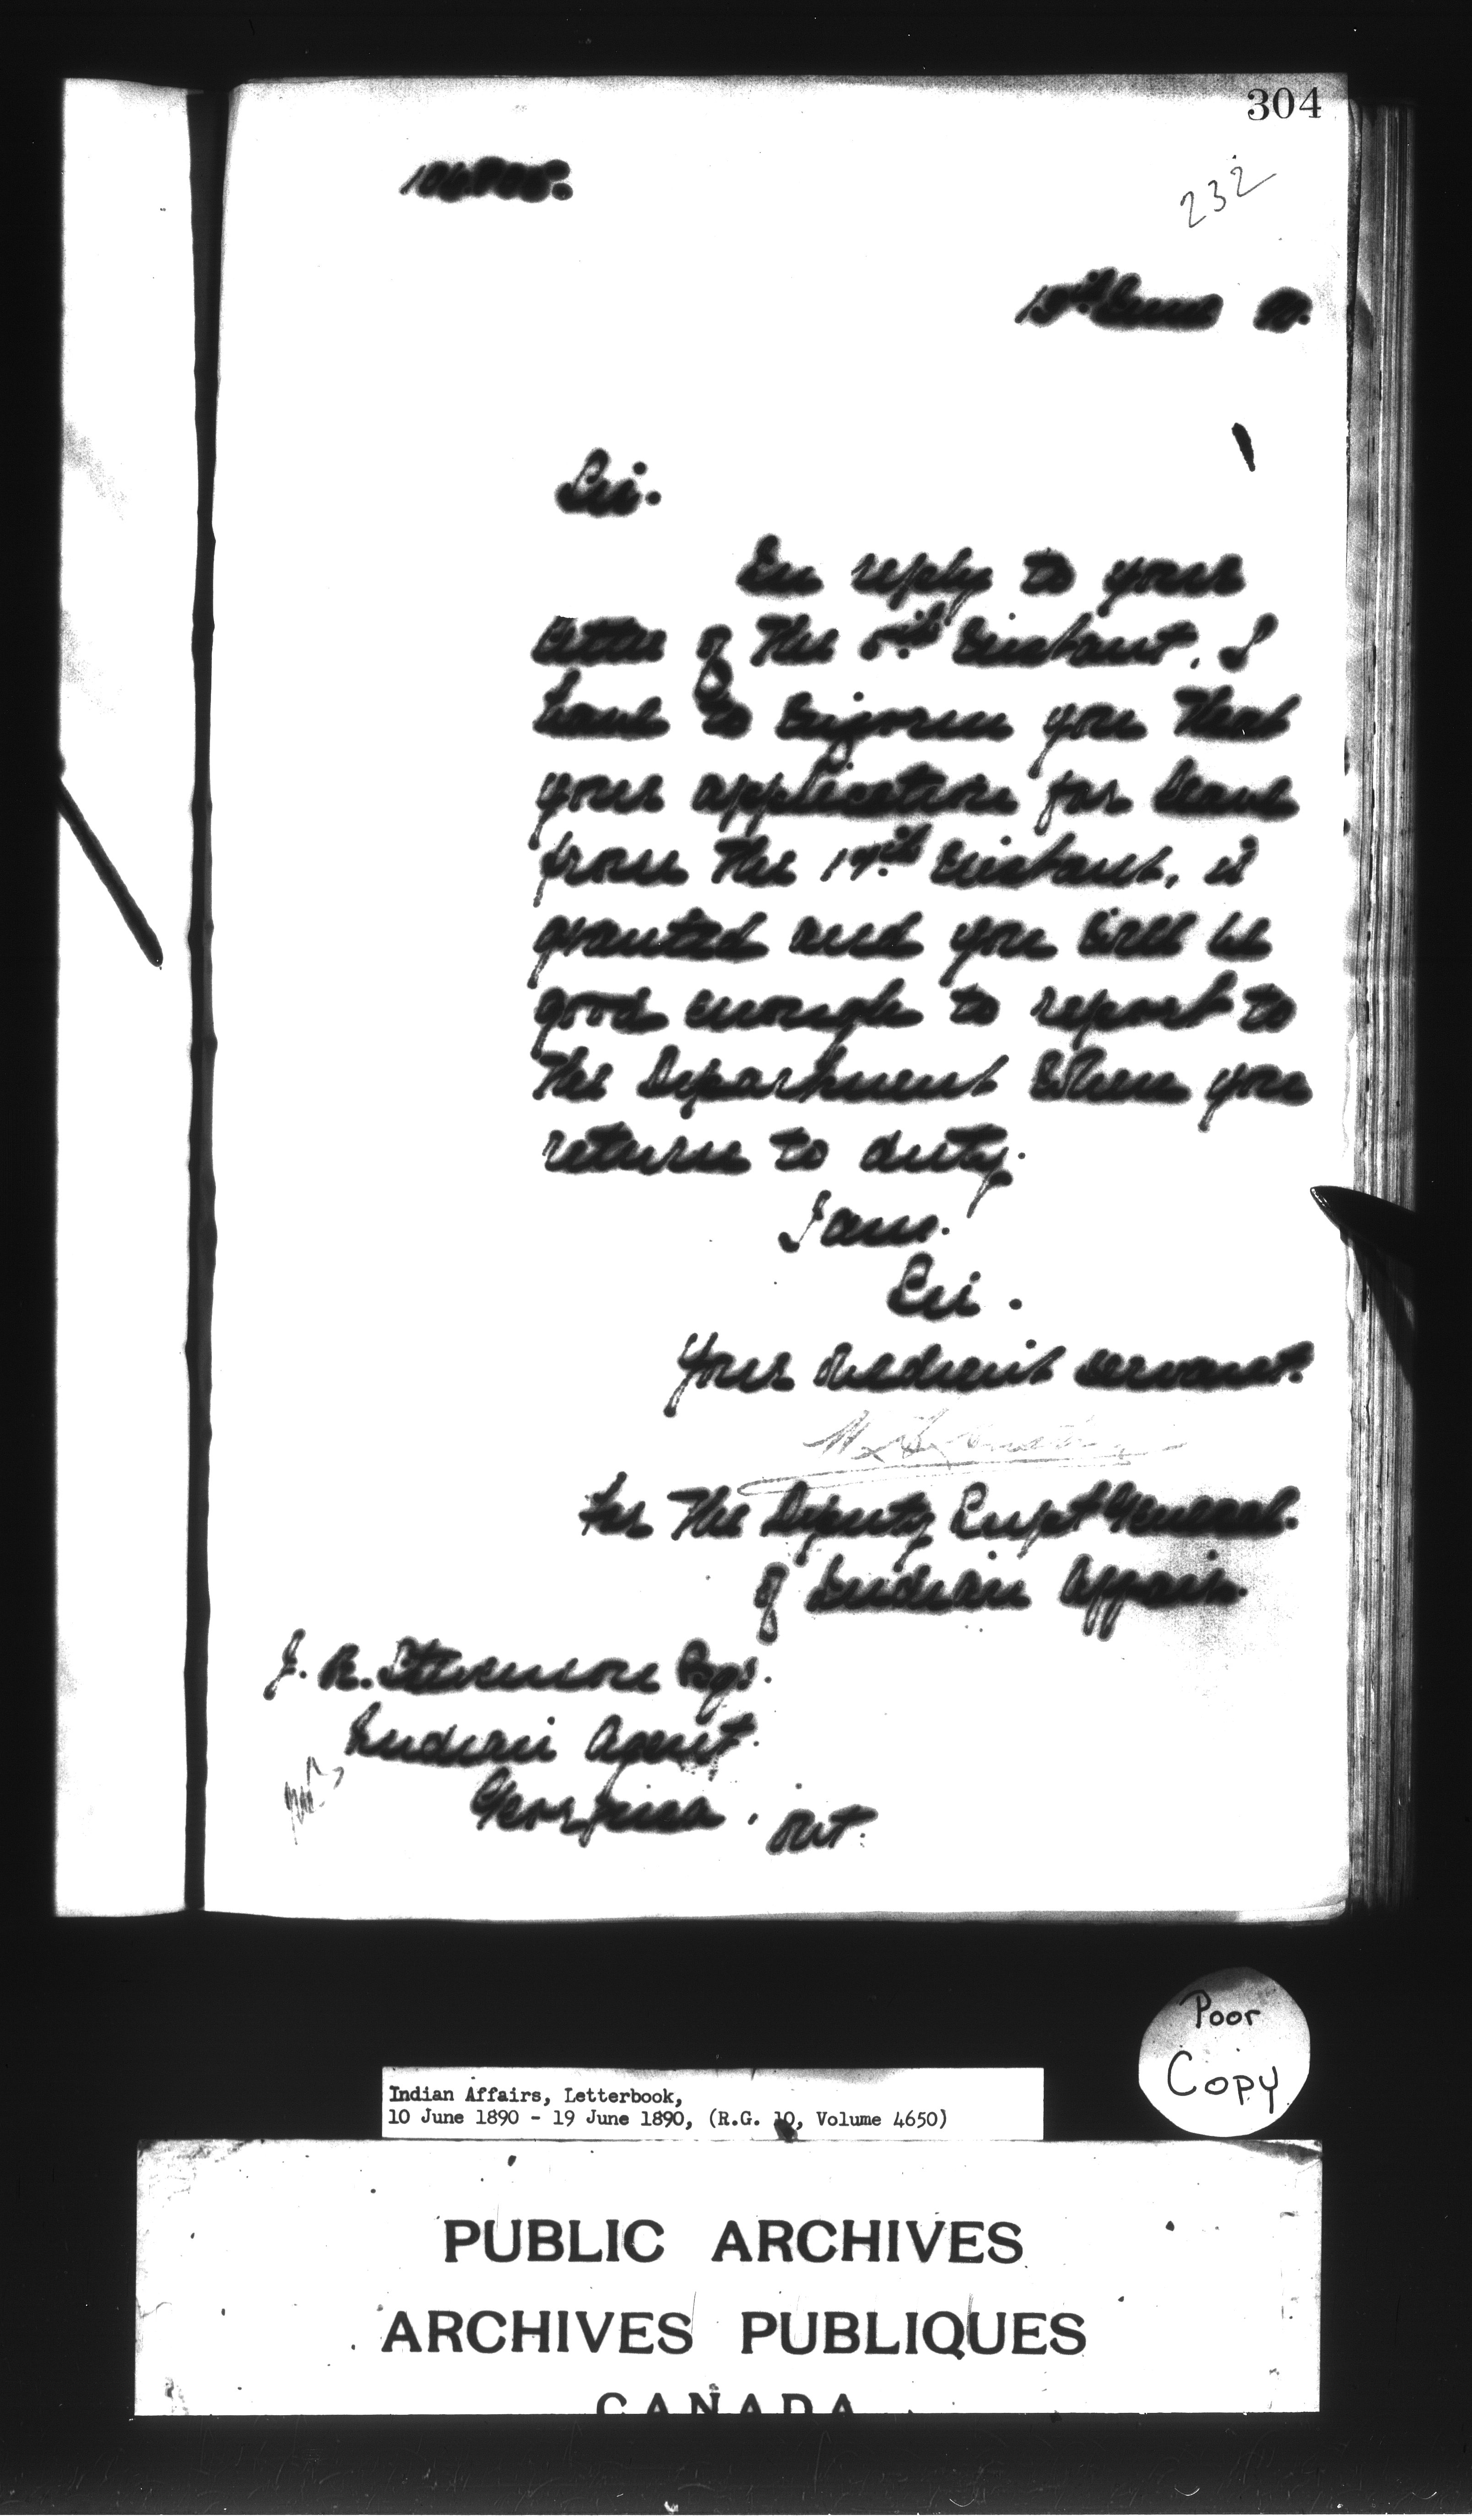 304
232
June 90.
Sir.
In reply to your
letter of the instant, I
have to inform you that
your application for leave
from the 17th instant, is
granted and you will be
good enough to report to
the Department when you
return to duty.
I am.
Sir.
Your obedient servant.
for the Deputy Supt General.
of Indian Affairs.
J. R. Stevenson Esqr.
Indian Agent.
Georgina. Ont.
Poor
Copy
Indian Affairs, Letterbook,
10 June 1890 - 19 June 1890, (R.G. 10, Volume 4650)
PUBLIC ARCHIVES
ARCHIVES PUBLIQUES
CANADA